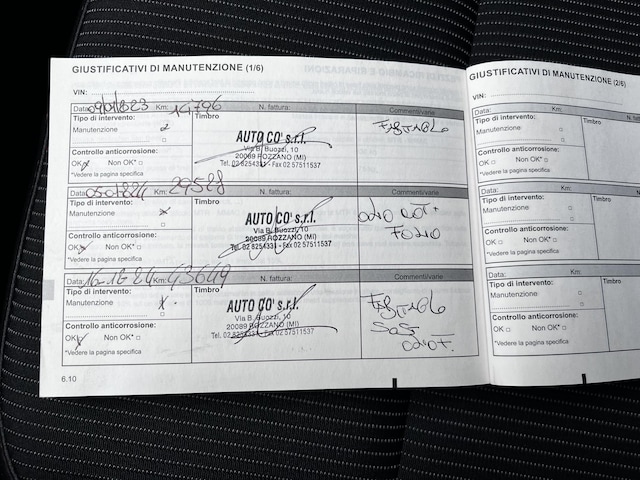 GIUSTIFICATIVI DI MANUTENZIONE (1/6)
VIN:
Data: Km: 14796 N. fattura: Commenti/varie
Tipo di intervento: Timbro
Manutenzione
AUTO CO' s.r.l.
Via B. Buozzi, 10
20089 ROZZANO (MI)
Tel. 02 8254331 - Fax 02 57511537
Controllo anticorrosione:
OK Non OK*
*Vedere la pagina specifica
Data: Km: 29528
Tipo di intervento: Timbro
Manutenzione
AUTO CO' s.r.l.
Via B. Buozzi, 10
20089 ROZZANO (MI)
Tel. 02 8254331 - Fax 02 57511537
Controllo anticorrosione:
OK Non OK*
*Vedere la pagina specifica
Data: Km: 43649 N. fattura: Commenti/varie
Tipo di intervento: Timbro
Manutenzione
AUTO CO' s.r.l.
Via B. Buozzi, 10
20089 ROZZANO (MI)
Tel. 02 8254331 - Fax 02 57511537
Controllo anticorrosione:
OK Non OK*
*Vedere la pagina specifica
6.10
GIUSTIFICATIVI DI MANUTENZIONE (2/6)
VIN:
Data: Km:
Tipo di intervento: Timbro
Manutenzione
Controllo anticorrosione:
OK Non OK*
*Vedere la pagina specifica
Data: Km:
Tipo di intervento: Timbro
Manutenzione
Controllo anticorrosione:
OK Non OK*
*Vedere la pagina specifica
Data: Km:
Tipo di intervento: Timbro
Manutenzione
Controllo anticorrosione:
OK Non OK*
*Vedere la pagina specifica